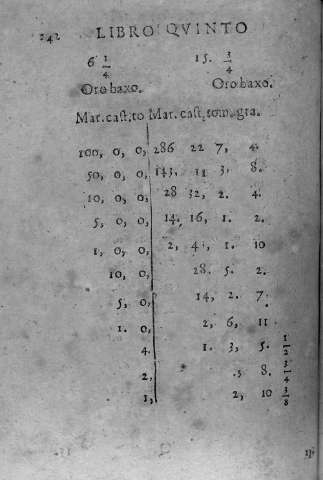 242 LIBRO QVINTO
6 1/4 15. 3/4
Oro baxo. Oro baxo.
Mar. cast. to Mar. cast. tom. gra.
100, 0, 0, 286 22 7, 4.
50, 0, 0, 143, 11 3, 8.
10, 0, 0, 28 32, 2. 4.
5, 0, 0, 14, 16, 1. 2.
1, 0, 0, 2, 41, 1. 10
10, 0, 28. 5. 2.
5, 0, 14, 2. 7.
1. 0, 2, 6, 11
4. 1. 3, 5. 1/2
2, 5 8. 3/4
1, 2, 10 3/8